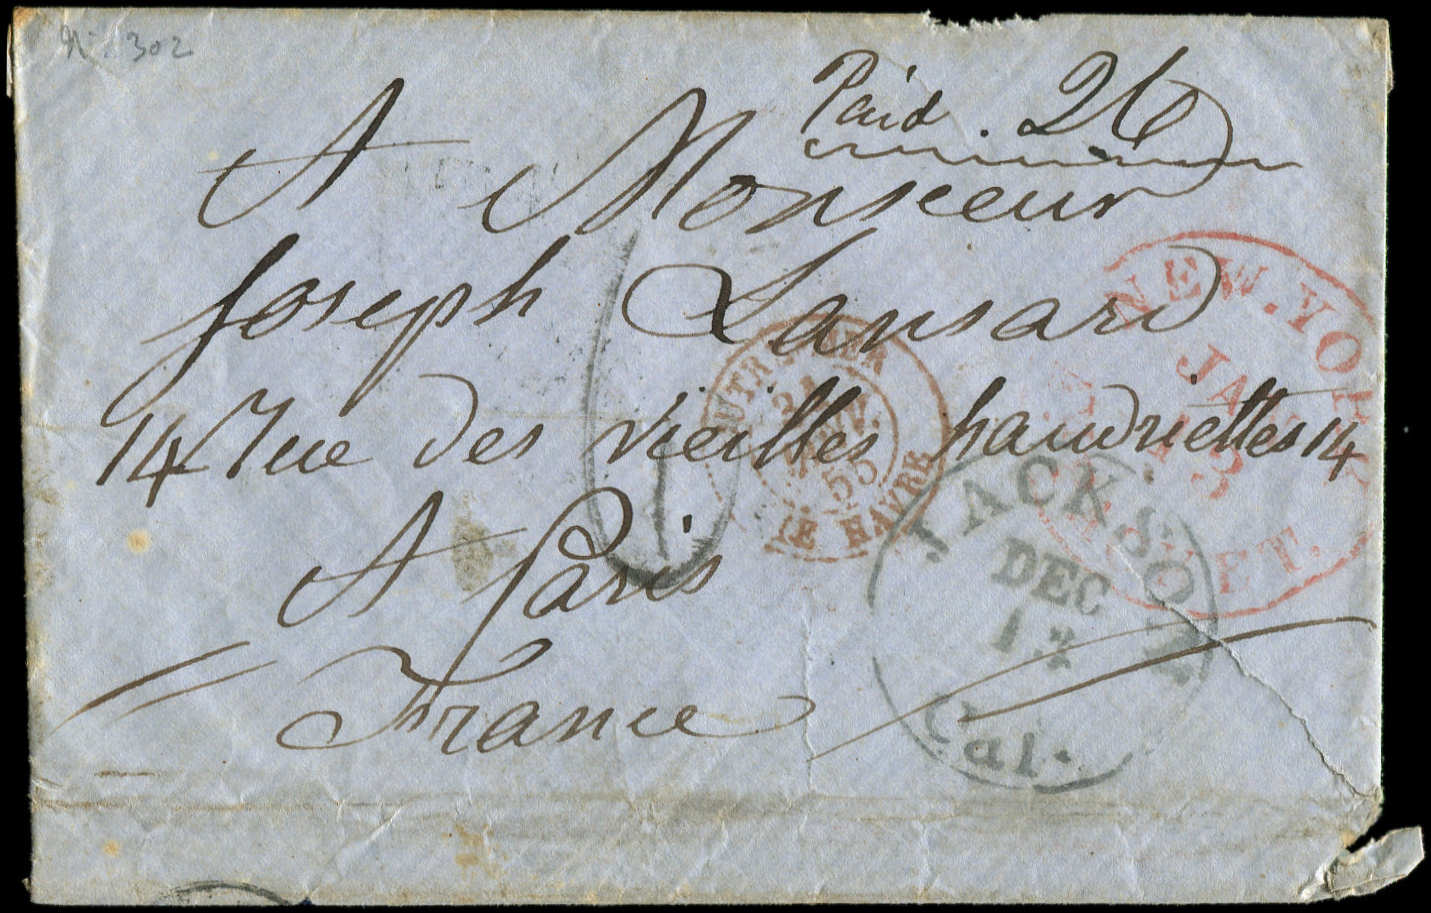 No. 302
Paid. 26
A Monsieur
Joseph Lansard
14 Rue des vieilles haudriettes 14
A Paris
France
NEW-YORK
JAN
13
PACKET.
OUTRE-MER
JANV.
55
LE HAVRE
JACKSON
DEC
13
Cal.